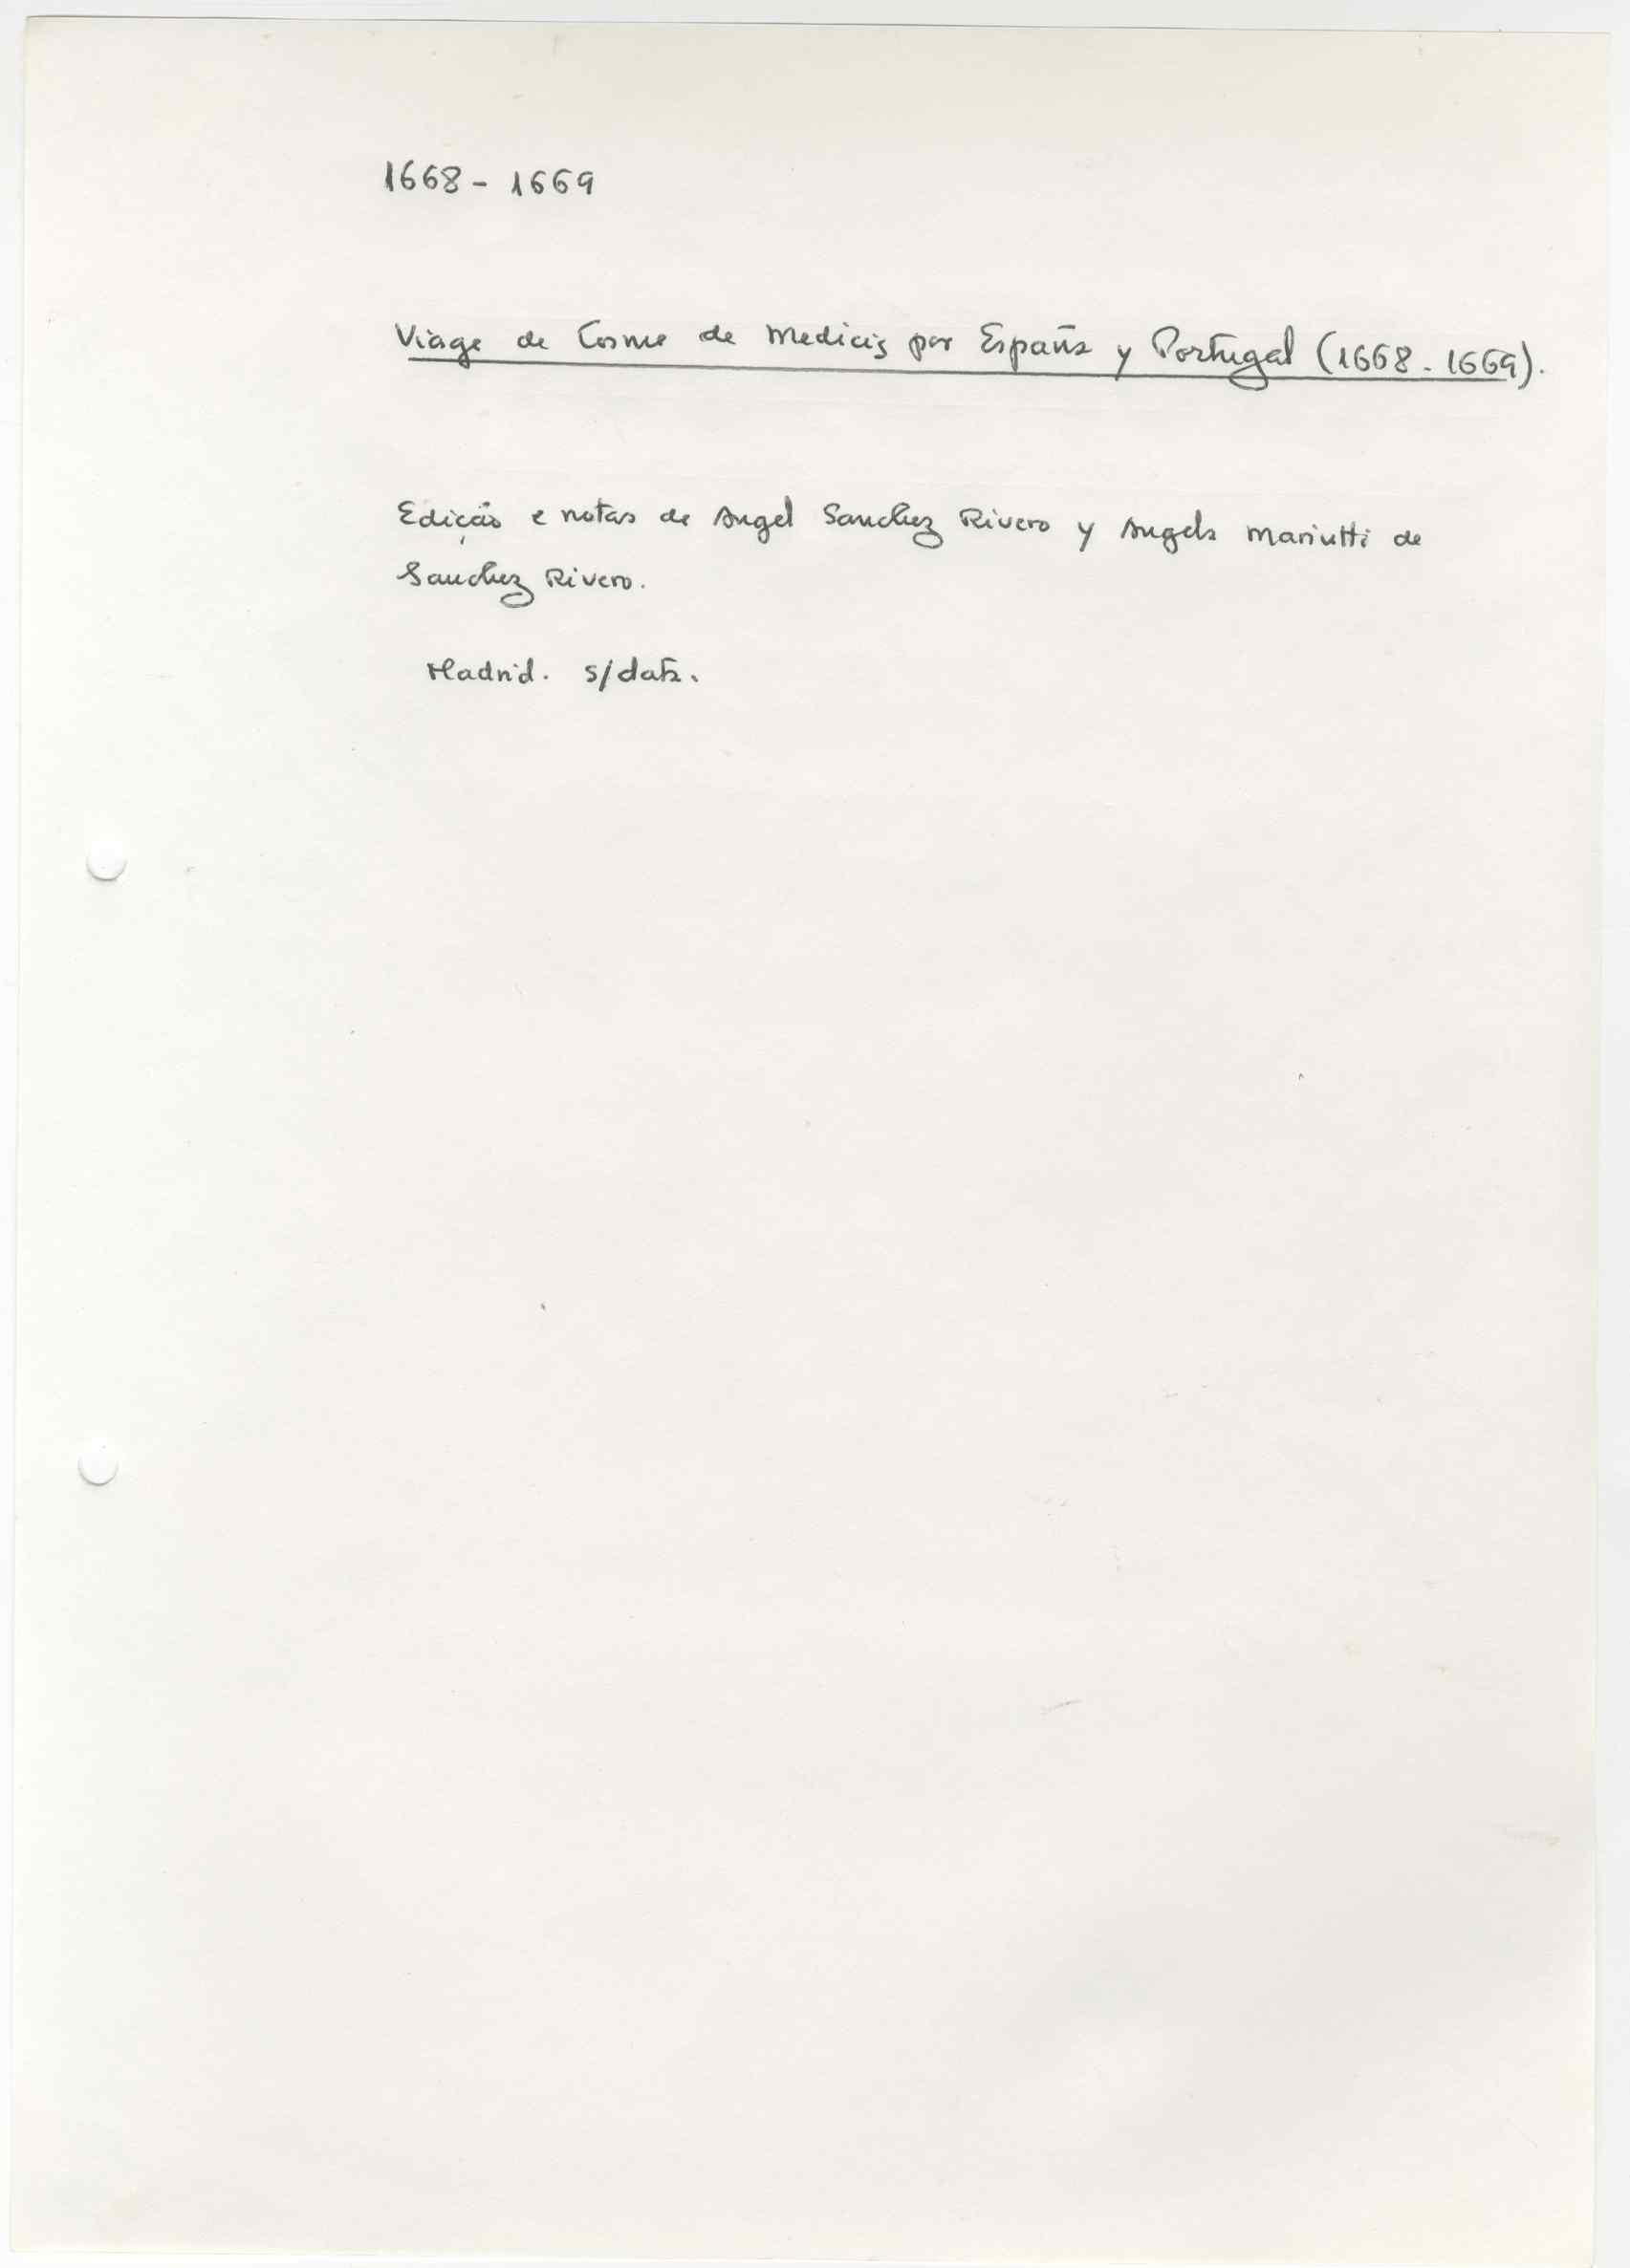 1668 - 1669
Viage de Cosme de Medicis por España y Portugal (1668 - 1669).
Edição e notas de Angel Sanchez Rivero y Angela Mariutti de
Sanchez Rivero.
Madrid. s/data.